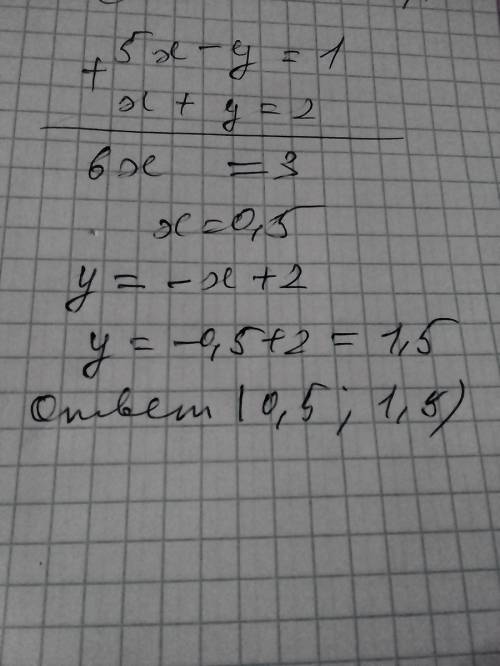 5x - y = 1
+
x + y = 2
6x = 3
x = 0,5
y = -x + 2
y = -0,5 + 2 = 1,5
Ответ (0,5 ; 1,5)